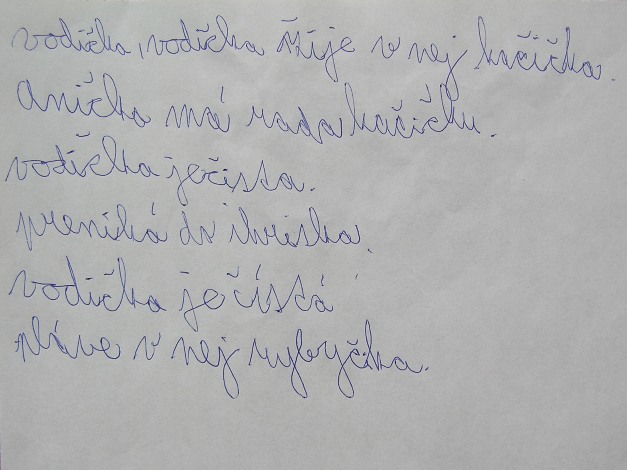 vodička, vodička žije v nej kačička.
anička má rada kačičku.
vodička ječista.
preniká do ihriska.
vodička ječístá
pláve v nej rybyčka.